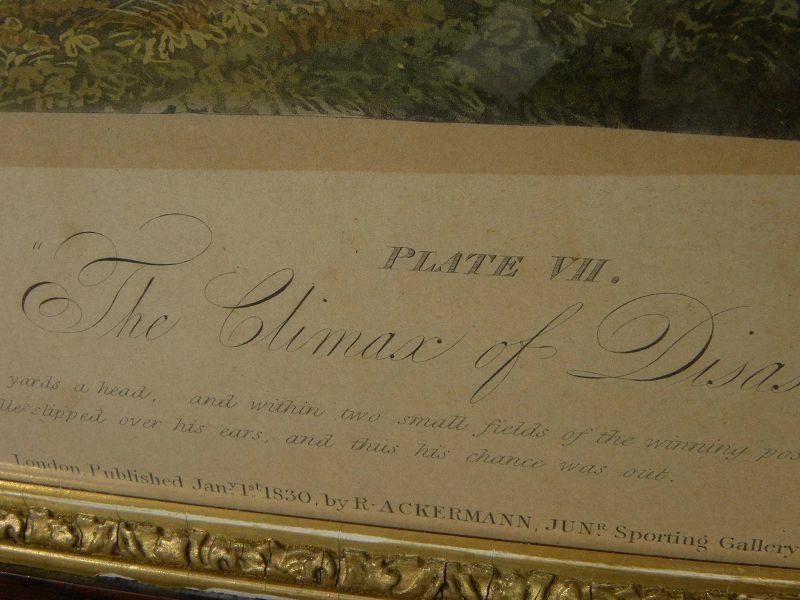 PLATE VII.
"The Climax of Disas
yards a head, and within two small fields of the winning pos
lle slipped over his ears, and thus his chance was out.
London, Published Jany. 1st. 1830, by R. ACKERMANN, JUNR. Sporting Gallery